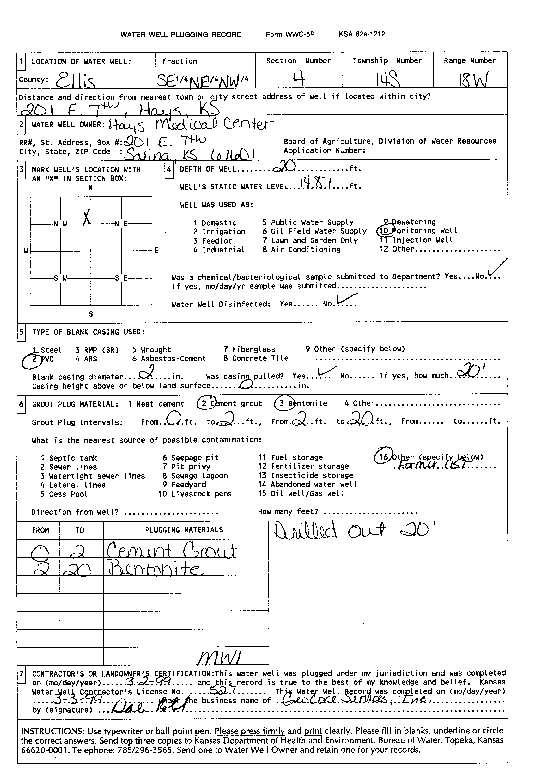 WATER WELL PLUGGING RECORD Form WWC-5P KSA 82a-1212
1 LOCATION OF WATER WELL: Fraction Section Number Township Number Range Number
County: Ellis SE 1/4 NE 1/4 NW 1/4 4 14S 18W
Distance and direction from nearest town or city street address of well if located within city?
201 E. 7th, Hays KS
2 WATER WELL OWNER: Hays Medical Center
RR#, St. Address, Box #: 201 E. 7th Board of Agriculture, Division of Water Resources
City, State, ZIP Code : Salina KS Application Number:
3 MARK WELL'S LOCATION WITH AN "X" IN SECTION BOX:
N
N W X N E
W E
S W S E
S
4 DEPTH OF WELL 20 ft.
WELL'S STATIC WATER LEVEL 14.81 ft.
WELL WAS USED AS:
1 Domestic 5 Public Water Supply 9 Dewatering
2 Irrigation 6 Oil Field Water Supply 10 Monitoring Well
3 Feedlot 7 Lawn and Garden Only 11 Injection Well
4 Industrial 8 Air Conditioning 12 Other
Was a chemical/bacteriological sample submitted to department? Yes....No ✓
If yes, mo/day/yr sample was submitted
Water Well Disinfected: Yes..... No ✓
5 TYPE OF BLANK CASING USED:
1 Steel 3 RMP (SR) 5 Wrought 7 Fiberglass 9 Other (specify below)
2 PVC 4 ABS 6 Asbestos-Cement 8 Concrete Tile
Blank casing diameter 2 in. Was casing pulled? Yes ✓ No..... If yes, how much 20'
Casing height above or below land surface 0 in.
6 GROUT PLUG MATERIAL: 1 Neat cement 2 Cement grout 3 Bentonite 4 Other
Grout Plug Intervals: From 0 ft. to 2 ft., From 2 ft. to 20 ft., From..... to.....ft.
What is the nearest source of possible contamination:
1 Septic tank 6 Seepage pit 11 Fuel storage 16 Other (specify below)
2 Sewer lines 7 Pit privy 12 Fertilizer storage Former UST
3 Watertight sewer lines 8 Sewage lagoon 13 Insecticide storage
4 Lateral lines 9 Feedyard 14 Abandoned water well
5 Cess Pool 10 Livestock pens 15 Oil well/Gas well
Direction from well? How many feet?
FROM TO PLUGGING MATERIALS
0 2 Cement Grout
2 20 Bentonite
Drilled out 20'
MW1
7 CONTRACTOR'S OR LANDOWNER'S CERTIFICATION: This water well was plugged under my jurisdiction and was completed
on (mo/day/year) 3-2-99 and this record is true to the best of my knowledge and belief. Kansas
Water Well Contractor's License No. 527 This Water Well Record was completed on (mo/day/year)
3-3-99 the business name of GeoCore Services, Inc.
by (signature)
INSTRUCTIONS: Use typewriter or ball point pen. Please press firmly and print clearly. Please fill in blanks, underline or circle
the correct answers. Send top three copies to Kansas Department of Health and Environment, Bureau of Water, Topeka, Kansas
66620-0001. Telephone: 785/296-3565. Send one to Water Well Owner and retain one for your records.